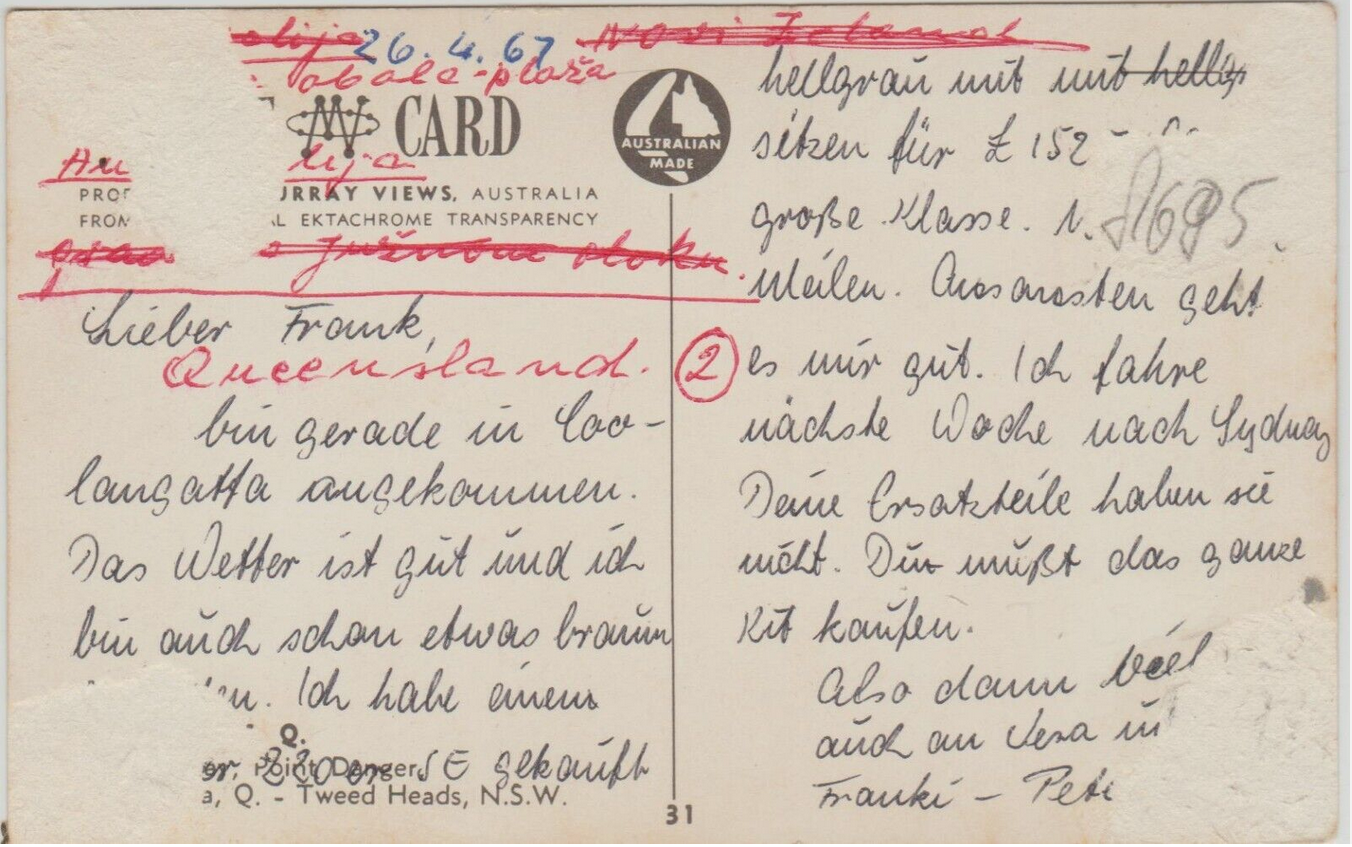 26.4.67 Novi Zeland
obale-plaža
CARD
AUSTRALIAN
MADE
lija
URRAY VIEWS, AUSTRALIA
EKTACHROME TRANSPARENCY
FROM
Južnom otoku.
Lieber Frank,
Queensland.
bin gerade in Coo-
langatta angekommen.
Das Wetter ist gut und ich
bin auch schon etwas braun
Ich habe einen
Q.
220 er SE gekauft
Point Danger,
Q. - Tweed Heads, N.S.W.
31
hellgrau mit mit hellg
sitzen für £ 152
große Klasse.
Meilen. Ansonsten geht
2
es mir gut. Ich fahre
nächste Woche nach Sydney
Deine Ersatzteile haben sie
nicht. Du mußt das ganze
Kit kaufen.
Also dann viel
auch an Vera
Franki - Pete